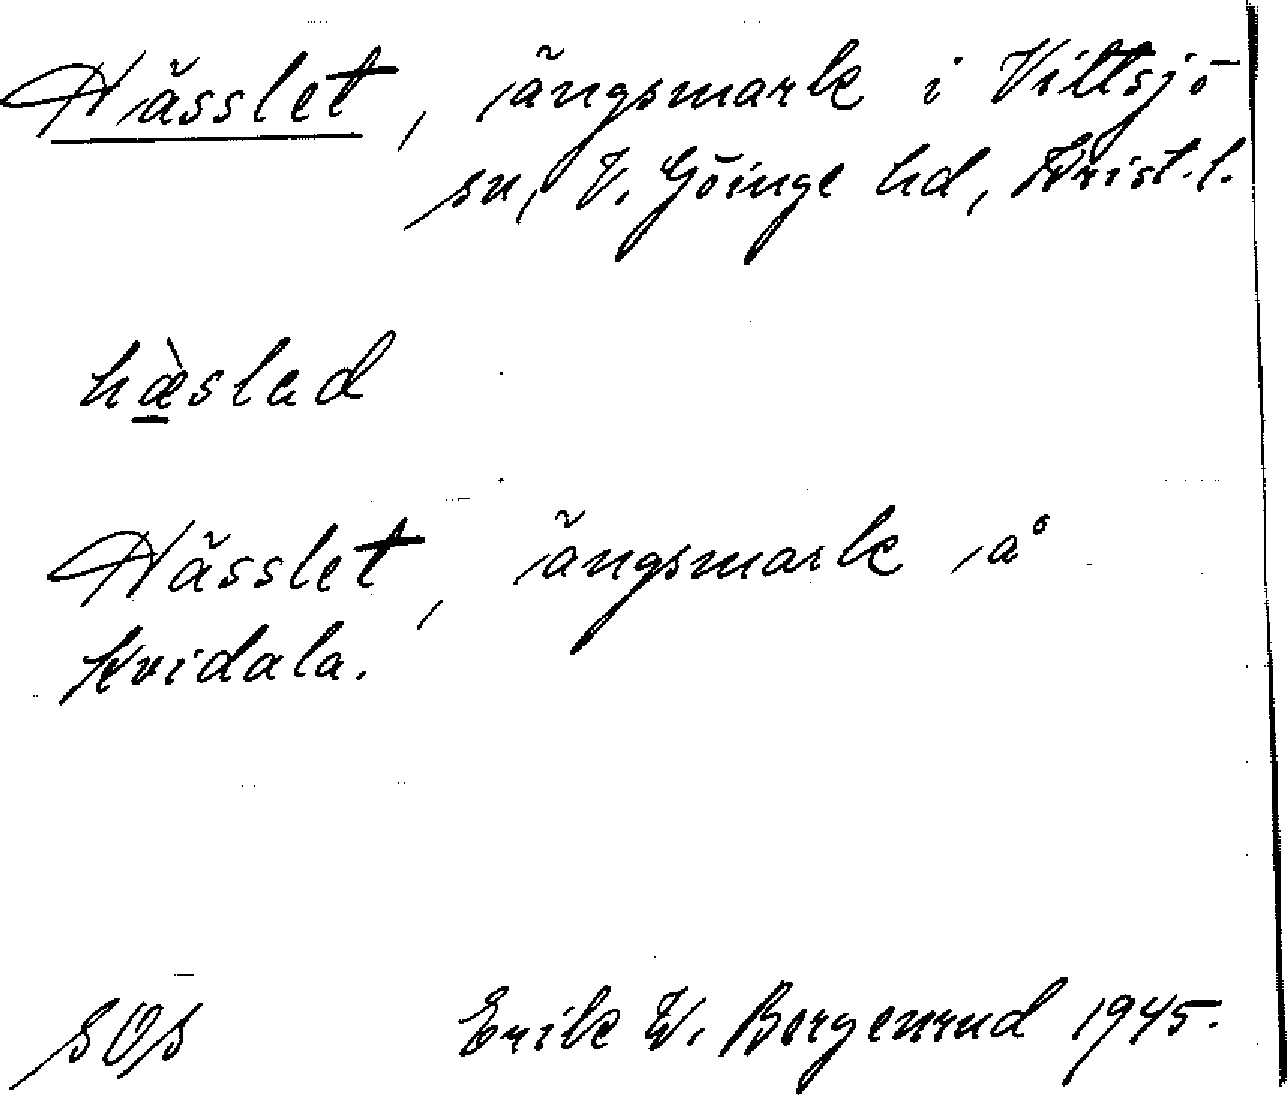 Hässlet, ängsmark i Vittsjö
sn, V. Göinge hd, Krist. l.
hæ̀slad
Hässlet, ängsmark å
Kvidala.
SOS Erik W. Borgenrud 1945.